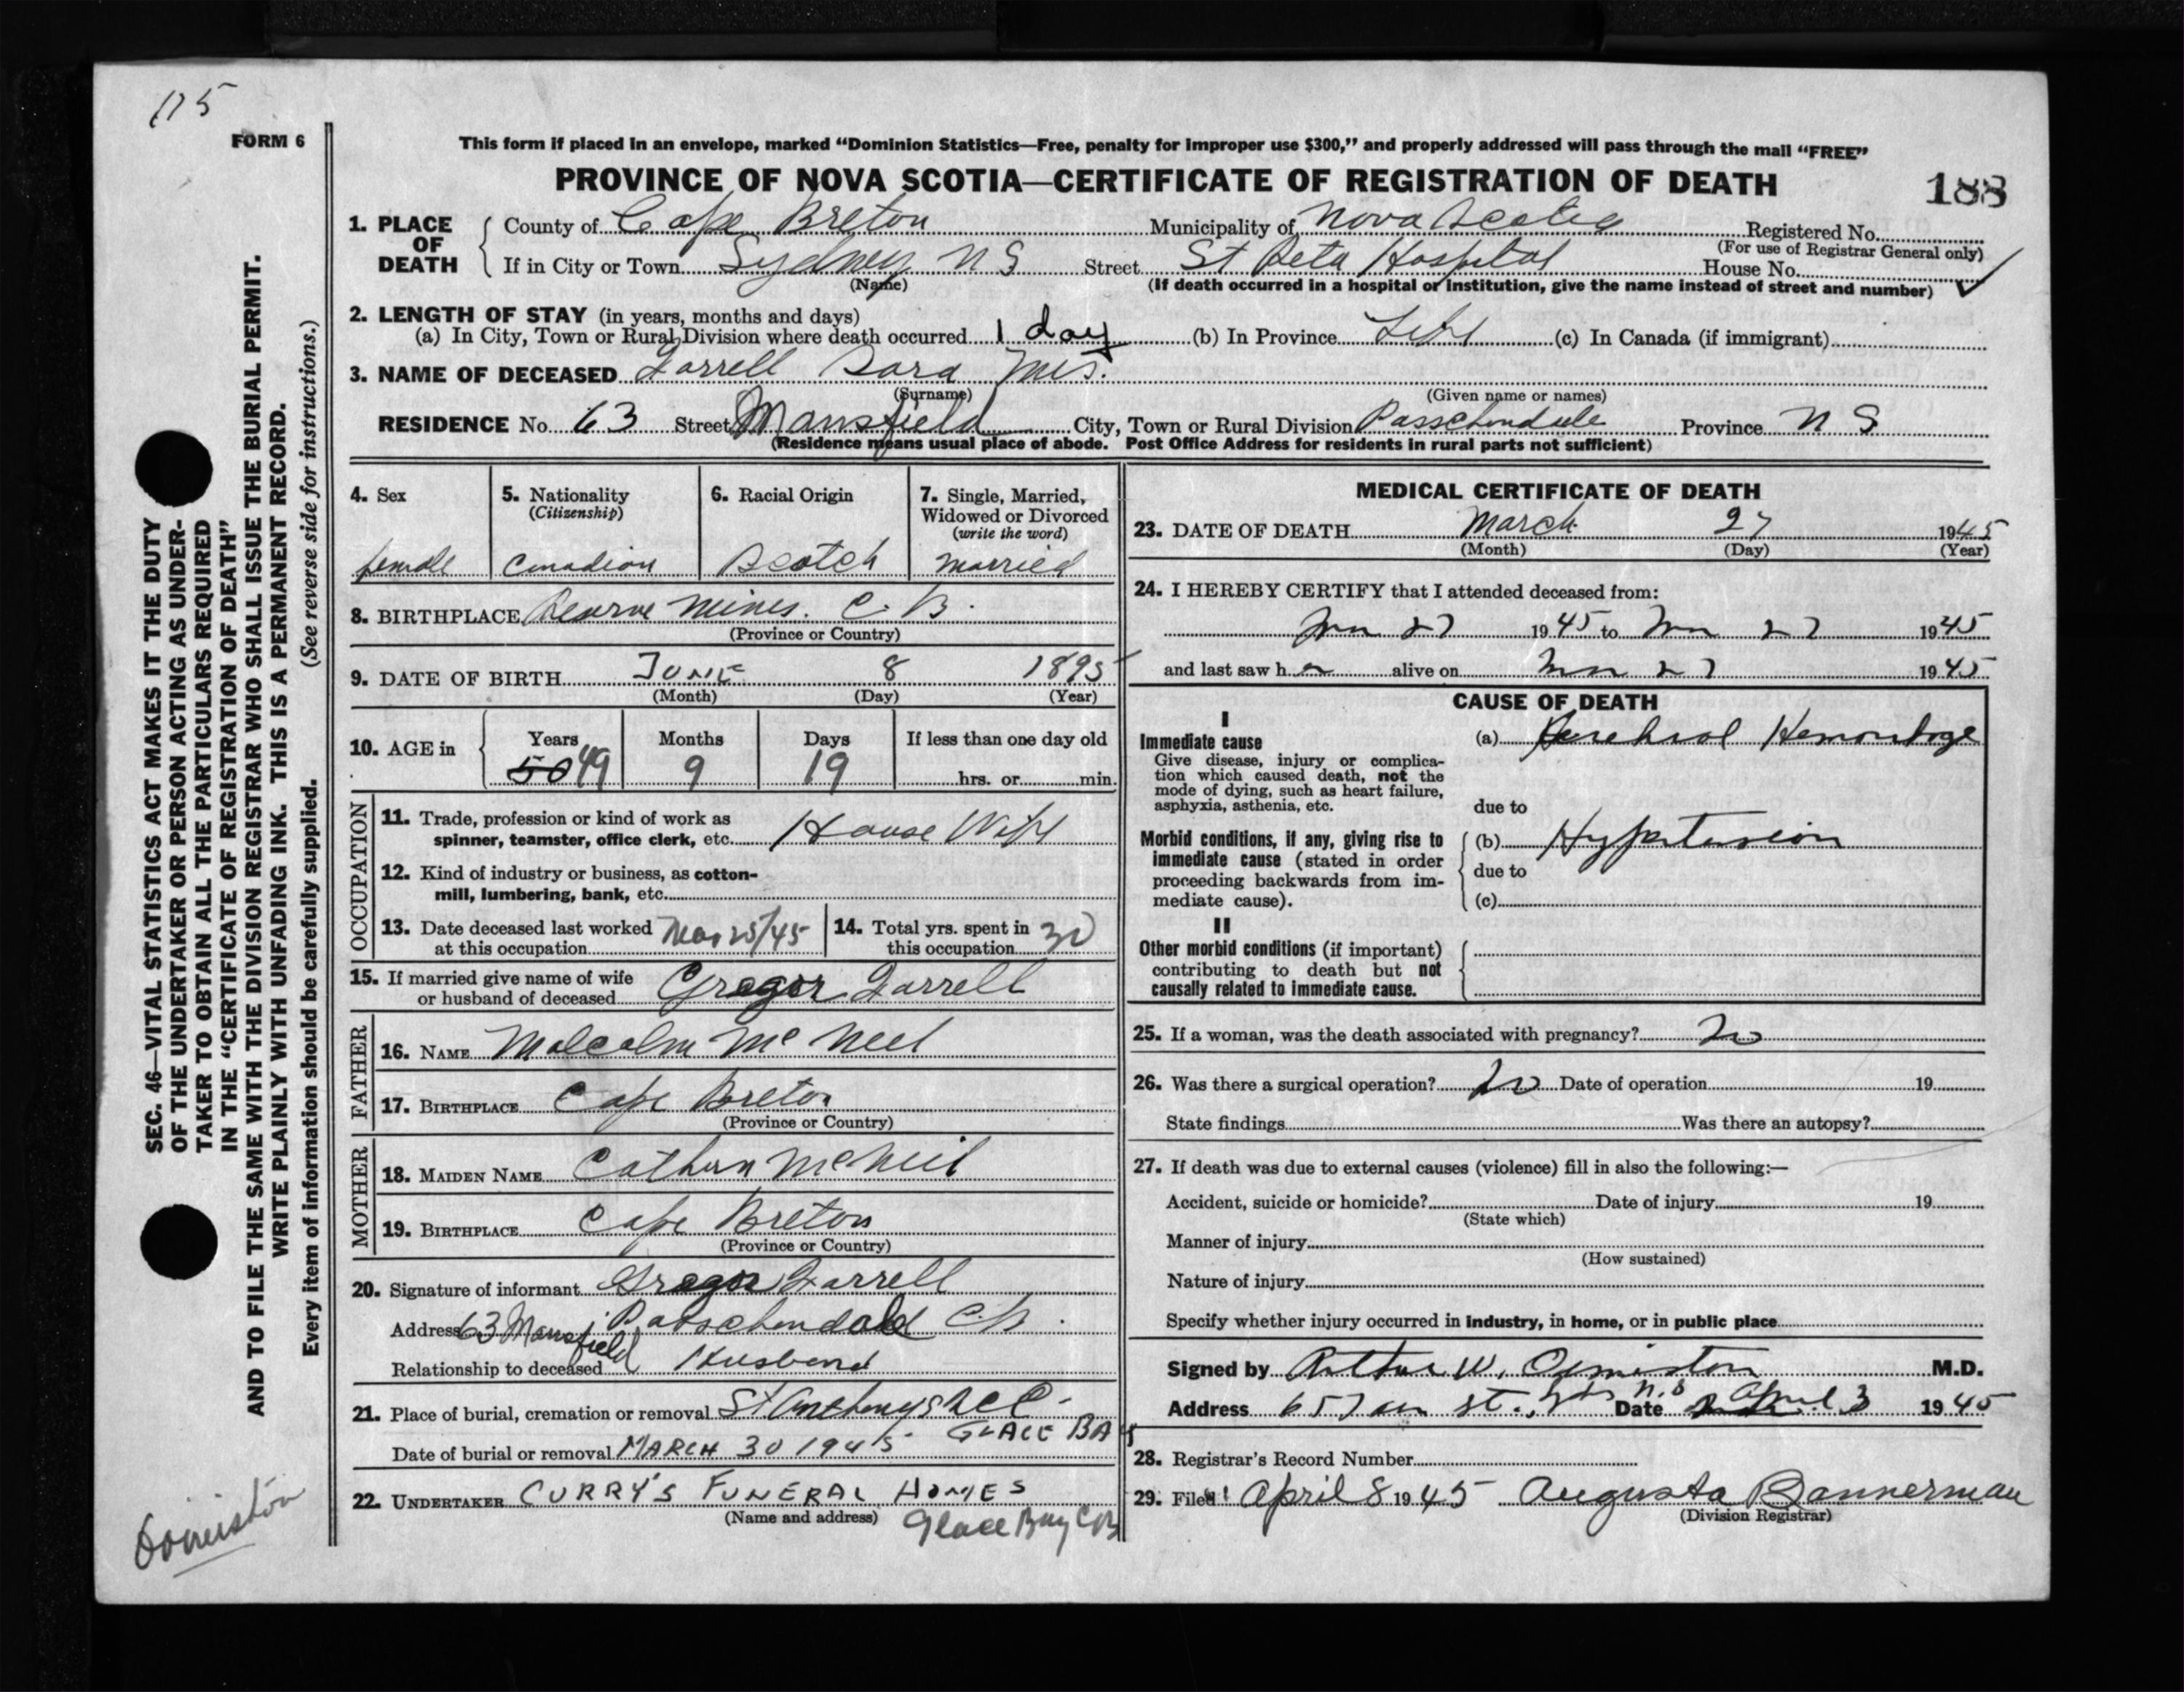 115
FORM 6
This form if placed in an envelope, marked "Dominion Statistics—Free, penalty for improper use $300," and properly addressed will pass through the mail "FREE"
PROVINCE OF NOVA SCOTIA—CERTIFICATE OF REGISTRATION OF DEATH
188
1. PLACE OF DEATH
County of Cape Breton Municipality of Nova Scotia Registered No.
(For use of Registrar General only)
If in City or Town Sydney N S Street St Reta Hospital House No.
(Name) (If death occurred in a hospital or institution, give the name instead of street and number)
2. LENGTH OF STAY (in years, months and days)
(a) In City, Town or Rural Division where death occurred 1 day (b) In Province Life (c) In Canada (if immigrant)
3. NAME OF DECEASED Farrell Sara Mrs.
(Surname) (Given name or names)
RESIDENCE No. 63 Street Mansfield City, Town or Rural Division Passchendale Province N S
(Residence means usual place of abode. Post Office Address for residents in rural parts not sufficient)
4. Sex
female
5. Nationality
(Citizenship)
Canadian
6. Racial Origin
Scotch
7. Single, Married,
Widowed or Divorced
(write the word)
married
8. BIRTHPLACE Reserve Mines. C. B.
(Province or Country)
9. DATE OF BIRTH JUNE 8 1895
(Month) (Day) (Year)
10. AGE in
Years Months Days If less than one day old
50 49 9 19 hrs. or min.
OCCUPATION
11. Trade, profession or kind of work as
spinner, teamster, office clerk, etc. House Wife
12. Kind of industry or business, as cotton-
mill, lumbering, bank, etc.
13. Date deceased last worked
at this occupation Mar 25/45
14. Total yrs. spent in
this occupation 30
15. If married give name of wife
or husband of deceased Gregor Farrell
FATHER
16. NAME Malcolm McNeil
17. BIRTHPLACE Cape Breton
(Province or Country)
MOTHER
18. MAIDEN NAME McNeil
19. BIRTHPLACE Cape Breton
(Province or Country)
20. Signature of informant Gregor Farrell
Address 63 Mansfield Passchendale C.B.
Relationship to deceased Husband
21. Place of burial, cremation or removal St Anthonys
GLACE BAY
Date of burial or removal MARCH 30 1945
22. UNDERTAKER CURRY'S FUNERAL HOMES
(Name and address) Glace Bay CB
MEDICAL CERTIFICATE OF DEATH
23. DATE OF DEATH March 27 1945
(Month) (Day) (Year)
24. I HEREBY CERTIFY that I attended deceased from:
Mar 27 1945 to Mar 27 1945
and last saw her alive on Mar 27 1945
CAUSE OF DEATH
I
Immediate cause
Give disease, injury or complica-
tion which caused death, not the
mode of dying, such as heart failure,
asphyxia, asthenia, etc.
(a) Cerebral Hemorrhage
due to
Morbid conditions, if any, giving rise to
immediate cause (stated in order
proceeding backwards from im-
mediate cause).
(b) Hypertension
due to
(c)
II
Other morbid conditions (if important)
contributing to death but not
causally related to immediate cause.
25. If a woman, was the death associated with pregnancy? No
26. Was there a surgical operation? No Date of operation 19
State findings Was there an autopsy?
27. If death was due to external causes (violence) fill in also the following:—
Accident, suicide or homicide? Date of injury 19
(State which)
Manner of injury
(How sustained)
Nature of injury
Specify whether injury occurred in industry, in home, or in public place
Signed by Arthur W. Ormiston M.D.
Address st. N.S Date April 3 1945
28. Registrar's Record Number
29. Filed April 8 1945 Augusta Bannerman
(Division Registrar)
SEC. 46—VITAL STATISTICS ACT MAKES IT THE DUTY
OF THE UNDERTAKER OR PERSON ACTING AS UNDER-
TAKER TO OBTAIN ALL THE PARTICULARS REQUIRED
IN THE "CERTIFICATE OF REGISTRATION OF DEATH"
AND TO FILE THE SAME WITH THE DIVISION REGISTRAR WHO SHALL ISSUE THE BURIAL PERMIT.
WRITE PLAINLY WITH UNFADING INK. THIS IS A PERMANENT RECORD.
Every item of information should be carefully supplied. (See reverse side for instructions.)